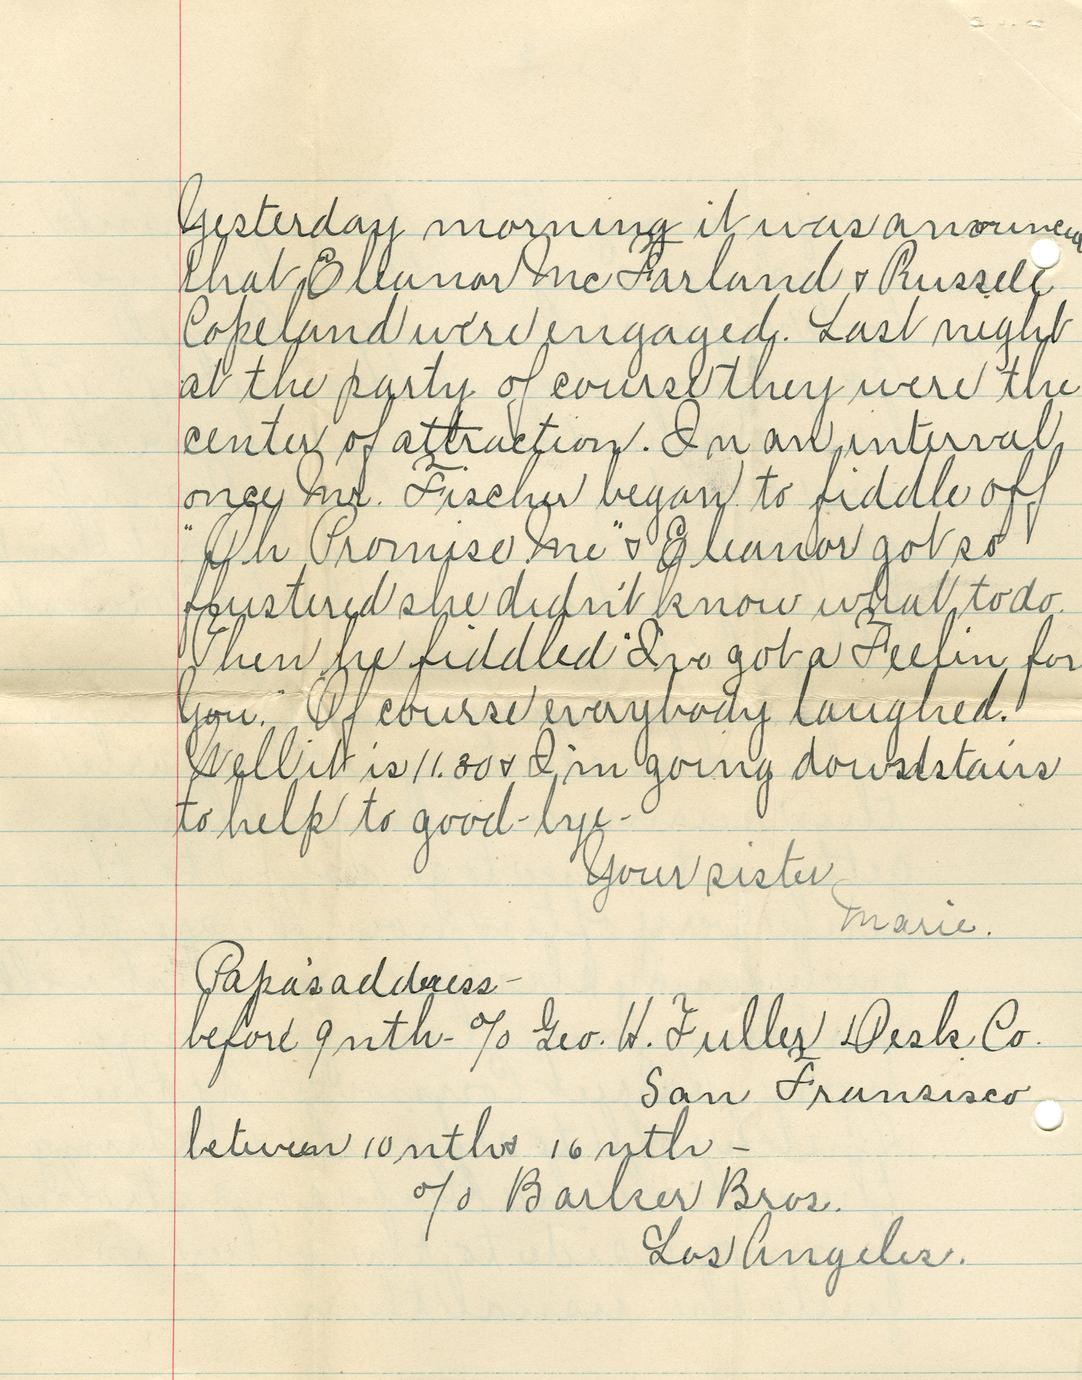 Yesterday morning it was anounced
that Eleanor Mc Farland & Russell
Copeland were engaged. Last night
at the party of course they were the
center of attraction. In an interval
once Mr. Fischer began to fiddle off
"Oh Promise Me" & Eleanor got so
flustered she didn't know what to do.
Then he fiddled "I've got a Feelin for
You." Of course everybody laughed.
Well it is 11.30 & I'm going downstairs
to help to good-bye-
Your sister
Marie.
Papa's address-
before 9nth- c/o Geo. H. Fuller Desk Co.
San Fransisco
between 10nth & 16nth -
c/o Barker Bros.
Los Angeles.